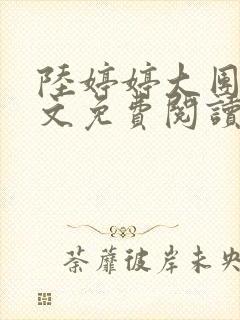 陸婷婷大團
文免費閱讀
荼蘼彼岸未央